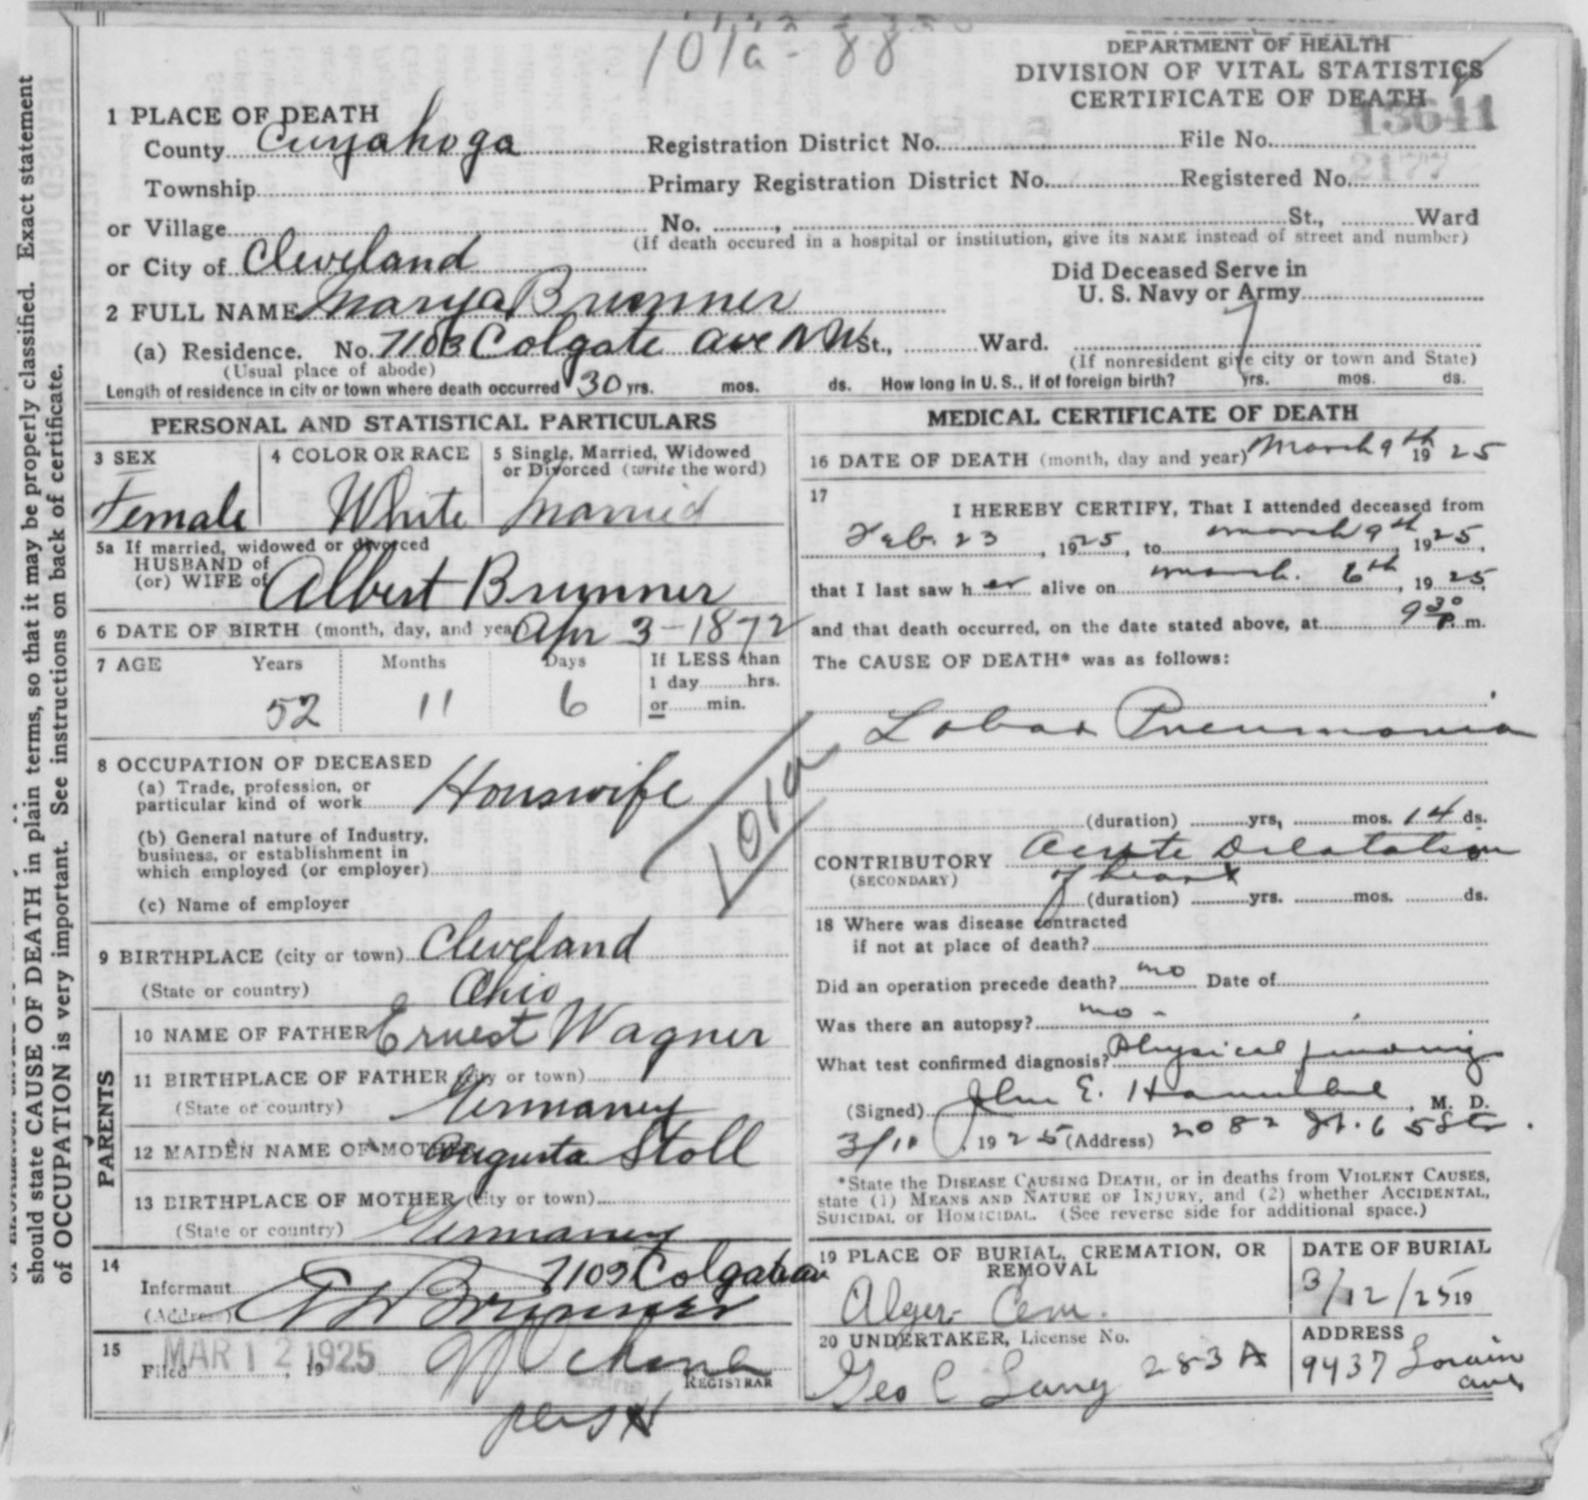 101a-88
DEPARTMENT OF HEALTH
DIVISION OF VITAL STATISTICS
CERTIFICATE OF DEATH
13641
1 PLACE OF DEATH
County Cuyahoga Registration District No. File No.
Township Primary Registration District No. Registered No. 2177
or Village No. , St., Ward
(If death occured in a hospital or institution, give its NAME instead of street and number)
or City of Cleveland
Did Deceased Serve in
U. S. Navy or Army
2 FULL NAME Marya Brunner
(a) Residence. No. 7103 Colgate ave NW St., Ward.
(Usual place of abode) (If nonresident give city or town and State)
Length of residence in city or town where death occurred 30 yrs. mos. ds. How long in U. S., if of foreign birth? yrs. mos. ds.
PERSONAL AND STATISTICAL PARTICULARS
3 SEX 4 COLOR OR RACE 5 Single, Married, Widowed
or Divorced (write the word)
Female White Married
5a If married, widowed or divorced
HUSBAND of
(or) WIFE of Albert Brunner
6 DATE OF BIRTH (month, day, and year) Apr 3-1872
7 AGE Years Months Days If LESS than
1 day hrs.
or min.
52 11 6
8 OCCUPATION OF DECEASED
(a) Trade, profession, or
particular kind of work Houswife
101a
(b) General nature of Industry,
business, or establishment in
which employed (or employer)
(c) Name of employer
9 BIRTHPLACE (city or town) Cleveland
(State or country) Ohio
PARENTS
10 NAME OF FATHER Ernest Wagner
11 BIRTHPLACE OF FATHER (city or town)
(State or country) Germaney
12 MAIDEN NAME OF MOTHER Augusta Stoll
13 BIRTHPLACE OF MOTHER (city or town)
(State or country) Germaney
14
Informant 7103 Colgate av
(Address) Brunner
15
Filed MAR 12 1925, 19
REGISTRAR
MEDICAL CERTIFICATE OF DEATH
16 DATE OF DEATH (month, day and year) March 9th 1925
17
I HEREBY CERTIFY, That I attended deceased from
Feb. 23, 1925, to March 9th, 1925,
that I last saw her alive on March. 6th, 1925,
and that death occurred, on the date stated above, at 9 30 P. m.
The CAUSE OF DEATH* was as follows:
Lobar Pneumonia
(duration) yrs, mos. 14 ds.
CONTRIBUTORY Acute Dilatation
(SECONDARY) of heart
(duration) yrs. mos. ds.
18 Where was disease contracted
if not at place of death?
Did an operation precede death? no Date of
Was there an autopsy? no -
What test confirmed diagnosis? Physical findings
(Signed) John E. , M. D.
3/10, 1925 (Address) 2082 W. 65 St.
*State the DISEASE CAUSING DEATH, or in deaths from VIOLENT CAUSES,
state (1) MEANS AND NATURE OF INJURY, and (2) whether ACCIDENTAL,
SUICIDAL or HOMICIDAL. (See reverse side for additional space.)
19 PLACE OF BURIAL, CREMATION, OR
REMOVAL
Alger Cem.
DATE OF BURIAL
3/12/25 19
20 UNDERTAKER, License No.
Geo C Lang 283 A
ADDRESS
9437 Lorain
ave
should state CAUSE OF DEATH in plain terms, so that it may be properly classified. Exact statement
of OCCUPATION is very important. See instructions on back of certificate.